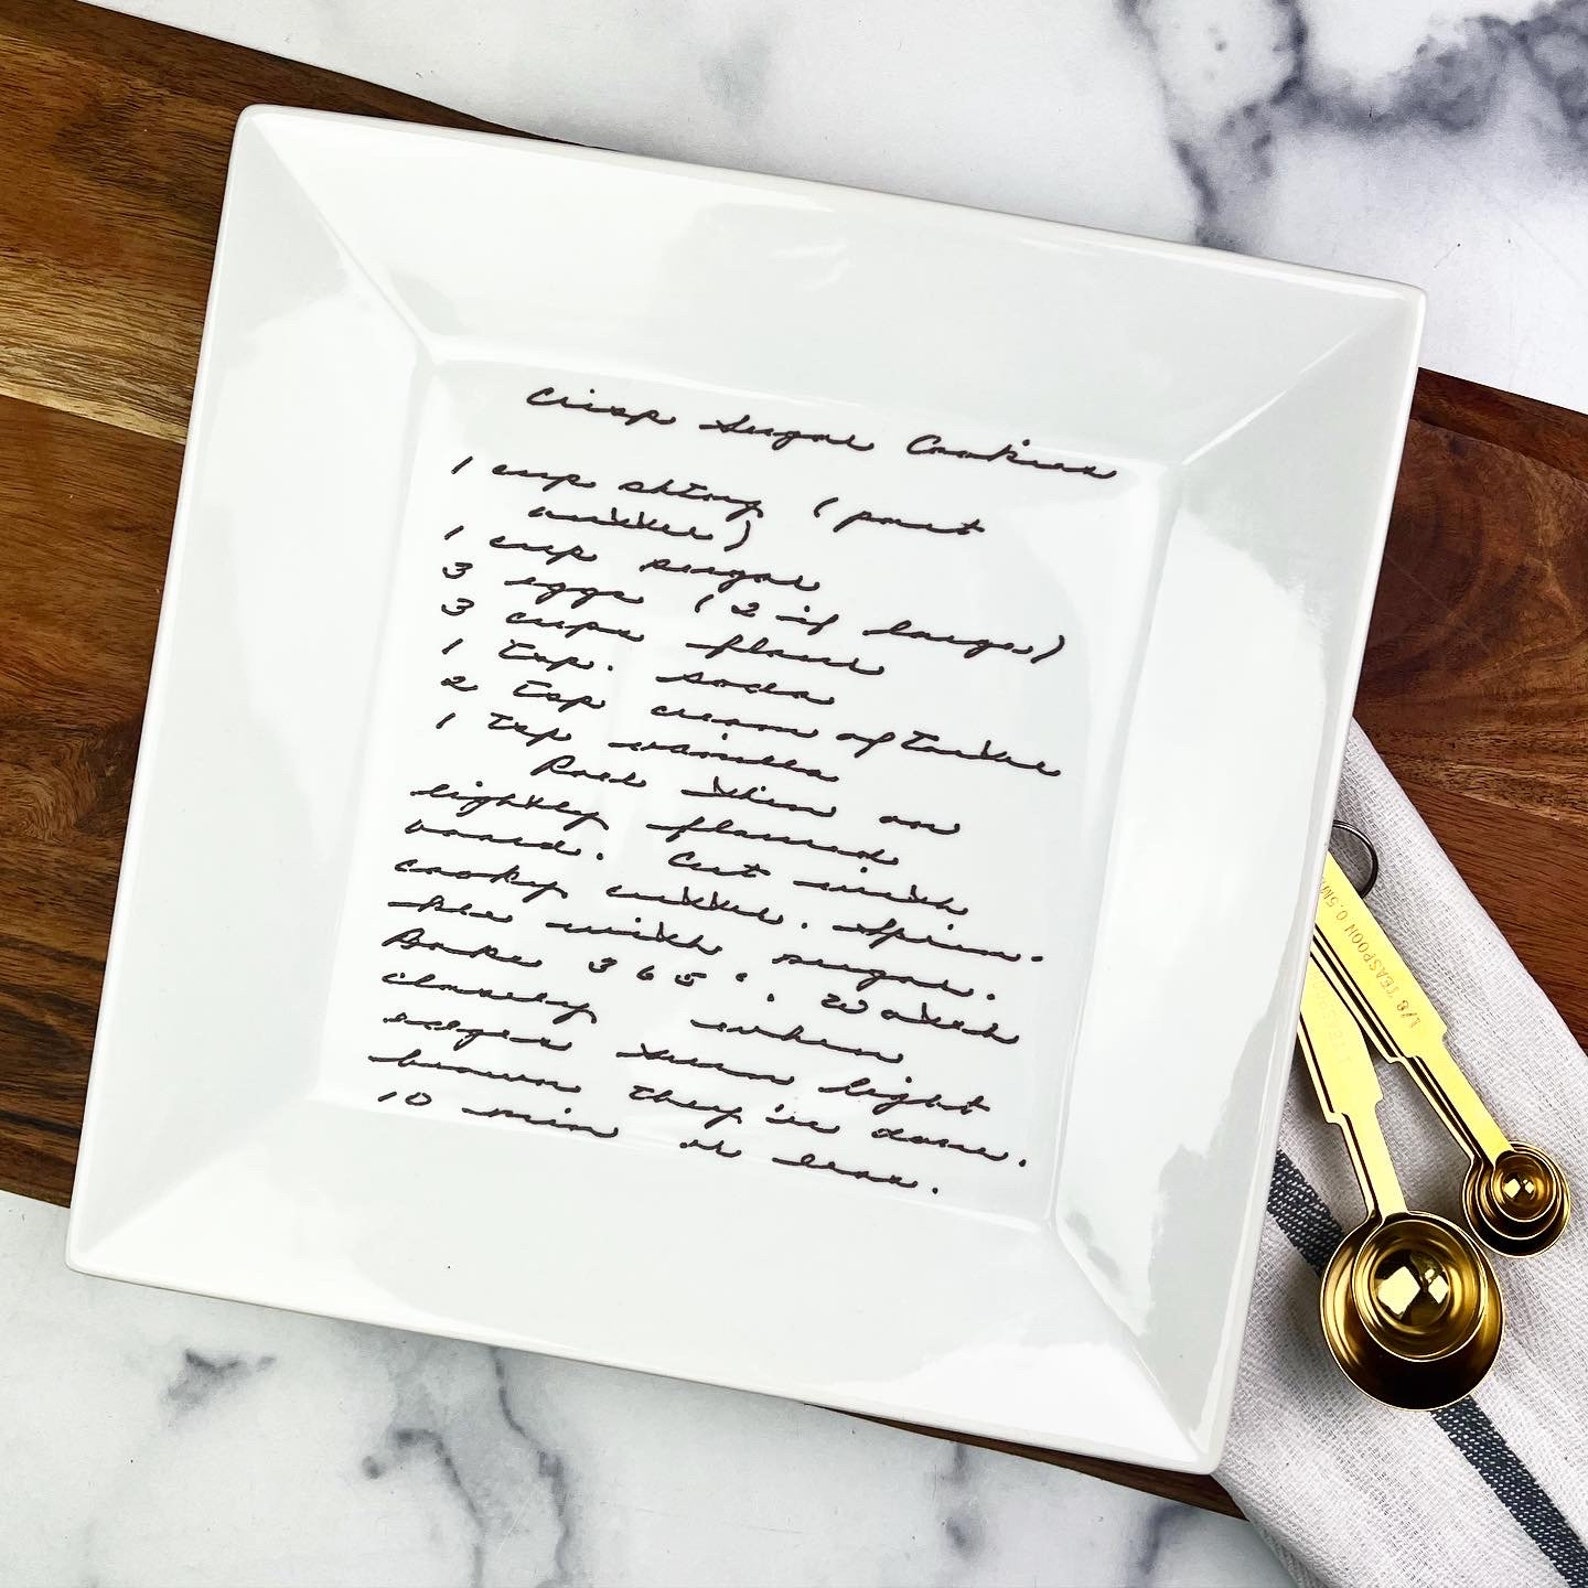 Crisp Sugar Cookies
1 cup shtng (part
butter)
1 cup sugar
3 eggs (2 if large)
3 cups flour
1 tsp. soda
2 tsp cream of tartar
1 tsp vanilla
Roll thin on
lightly floured
board. Cut with
cooky cutter. Sprin-
kle with sugar.
Bake 365°. Watch
closely when
edges turn light
brown they're done.
10 min or less.
1/8 TEASPOON 0.5M